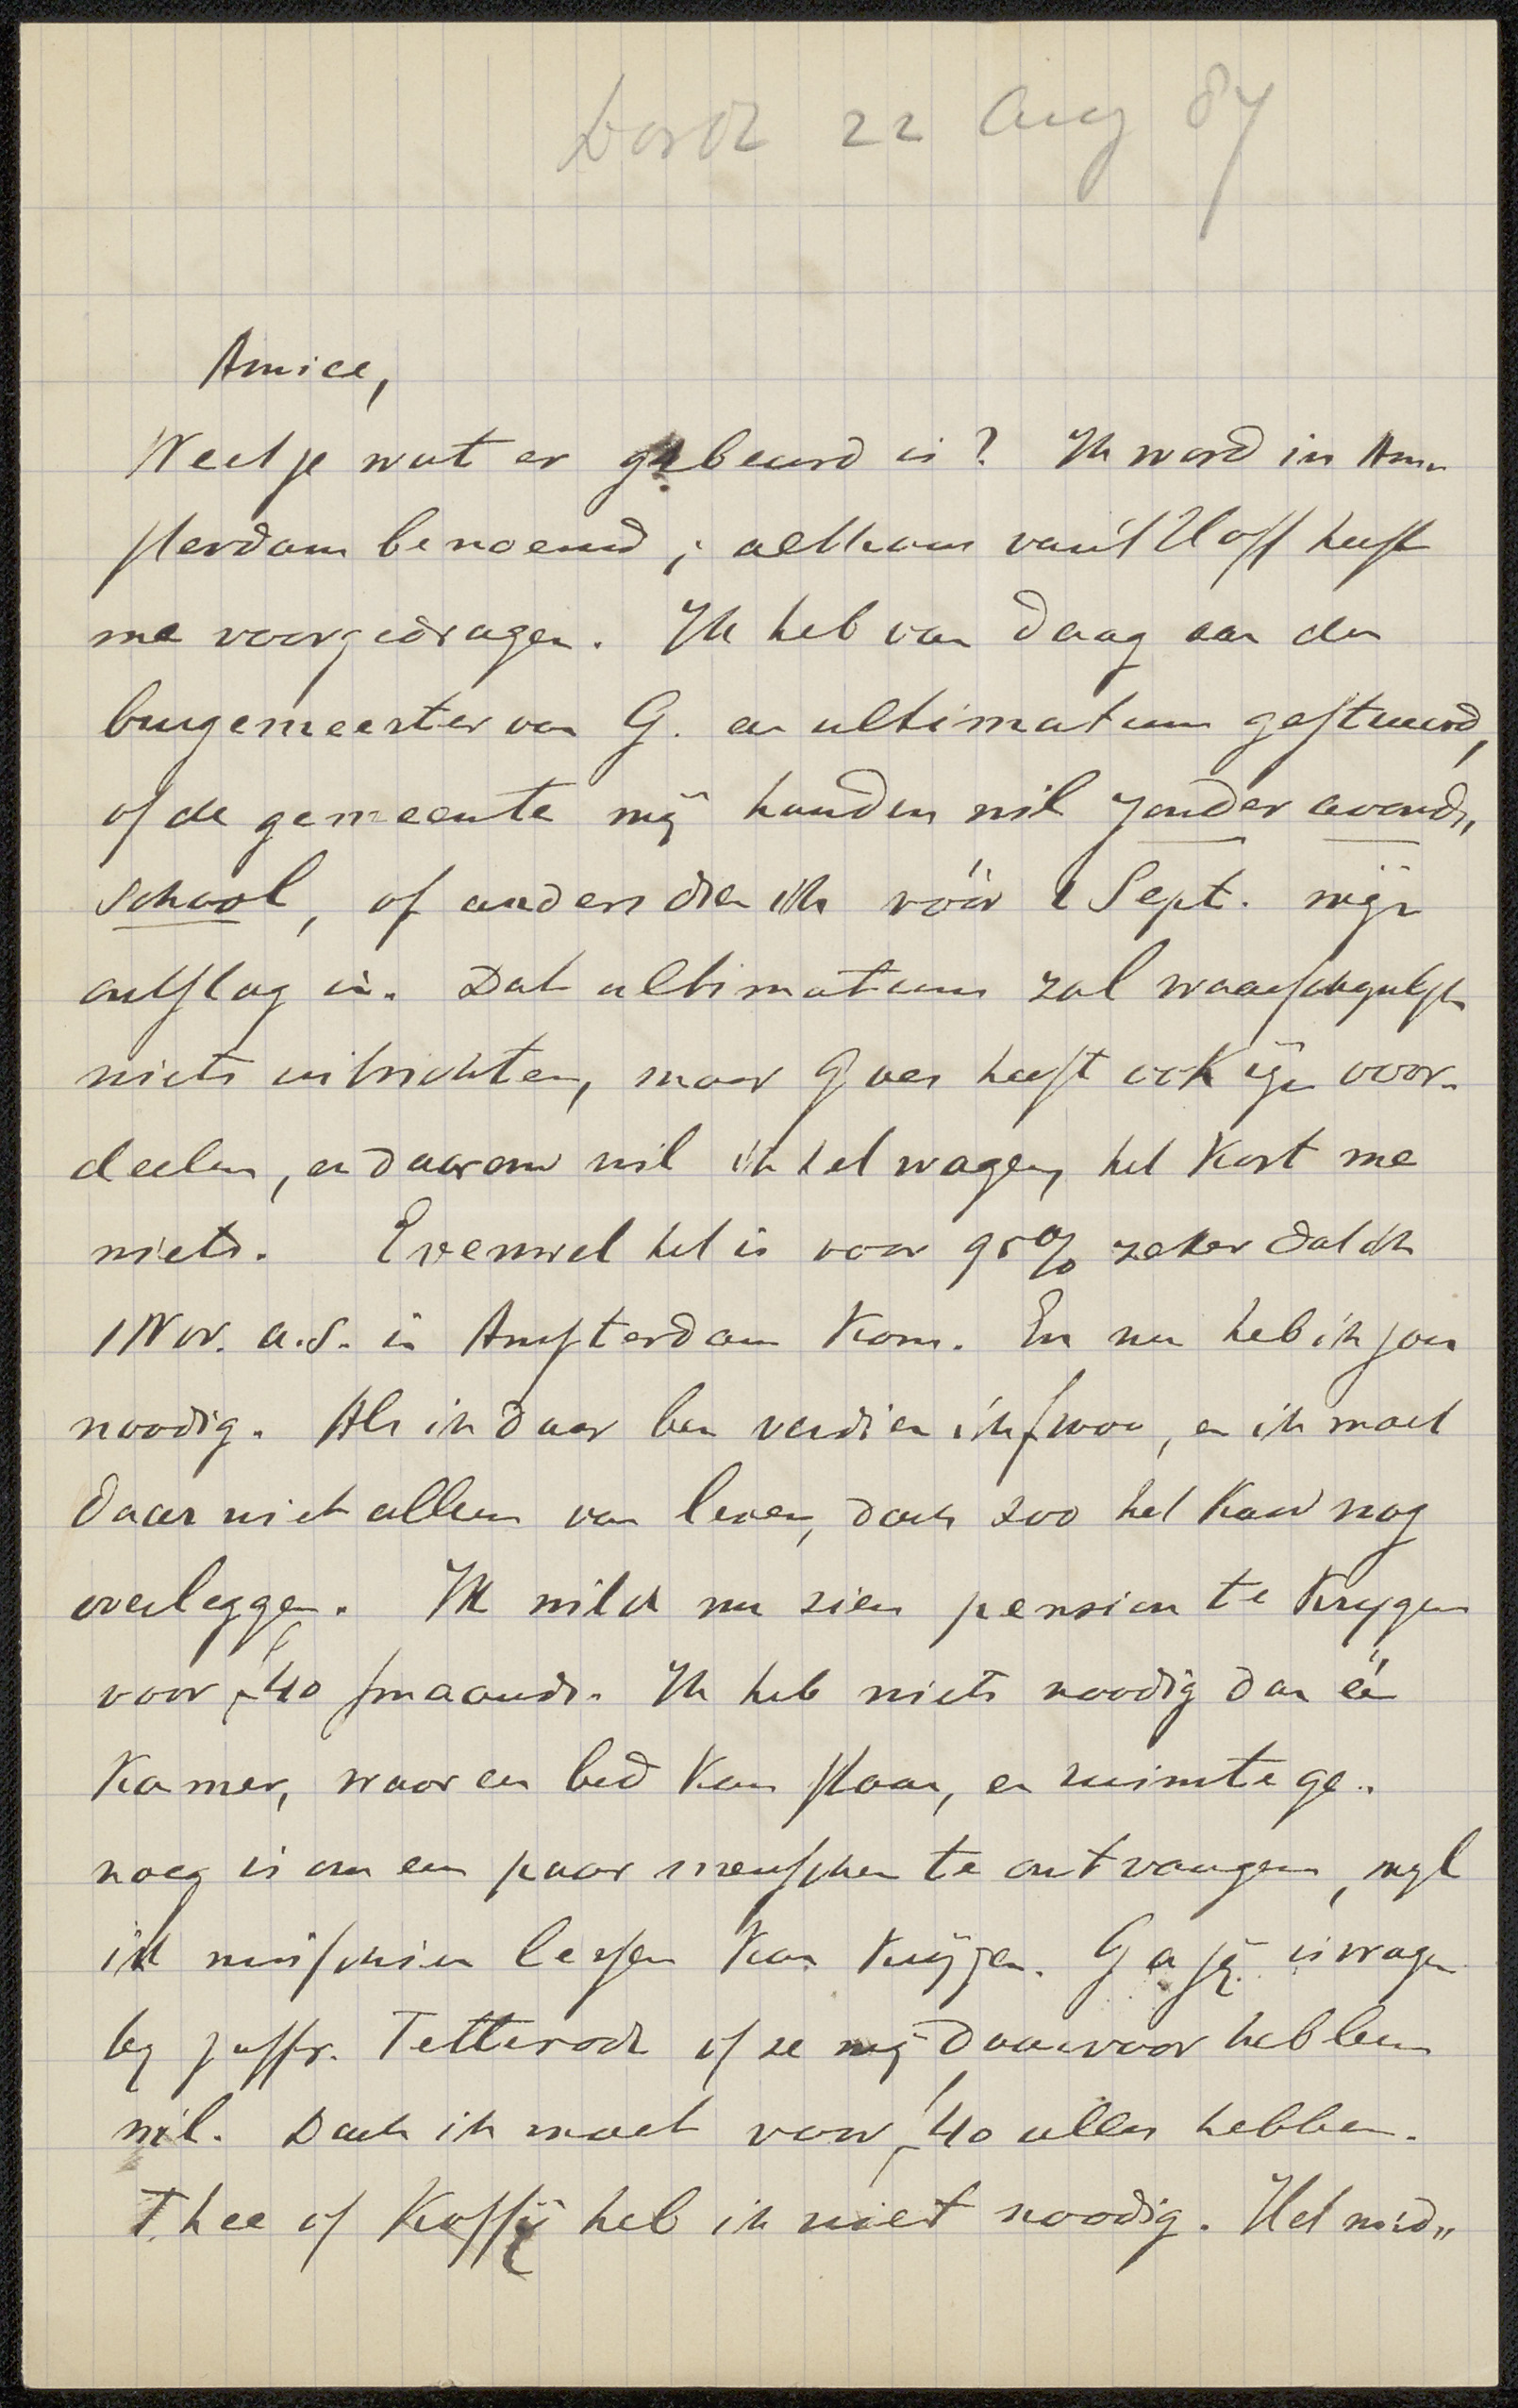 Dordt 22 Aug 87
Amice,
Weet je wat er gebeurd is? Ik word in Am-
sterdam benoemd; althans van't Hoff heeft
me voorgedragen. Ik heb van daag aan den
burgemeester van G. een ultimatum gestuurd,
of de gemeente mij houden wil zonder avond-
school, of anders dien ik vóór 1 Sept. mijn
ontslag in. Dat ultimatum zal waarschijnlijk
niets uitrichten, maar Goes heeft ook zijn voor-
deelen, en daarom wil ik het wagen, het kost me
niets. Evenwel het is voor 95% zeker dat ik
1 Nov. a.s. in Amsterdam kom. En nu heb ik jou
noodig. Als ik daar ben verdien ik f 1000, en ik moet
daar niet alleen van leven, doch zoo het kan nog
overleggen. Ik wilde nu zien pension te krijgen
voor f 40 's maands. Ik heb niets noodig dan één
kamer, waar een bed kan staan, en ruimte ge-
noeg is om een paar menschen te ontvangen, wijl
ik misschien lessen kan krijgen. Ga jij is vragen
bij juffr. Tetterode of ze mij daarvoor hebben
wil. Doch ik moet voor f 40 alles hebben.
Thee of koffij heb ik niet noodig. Het mid-